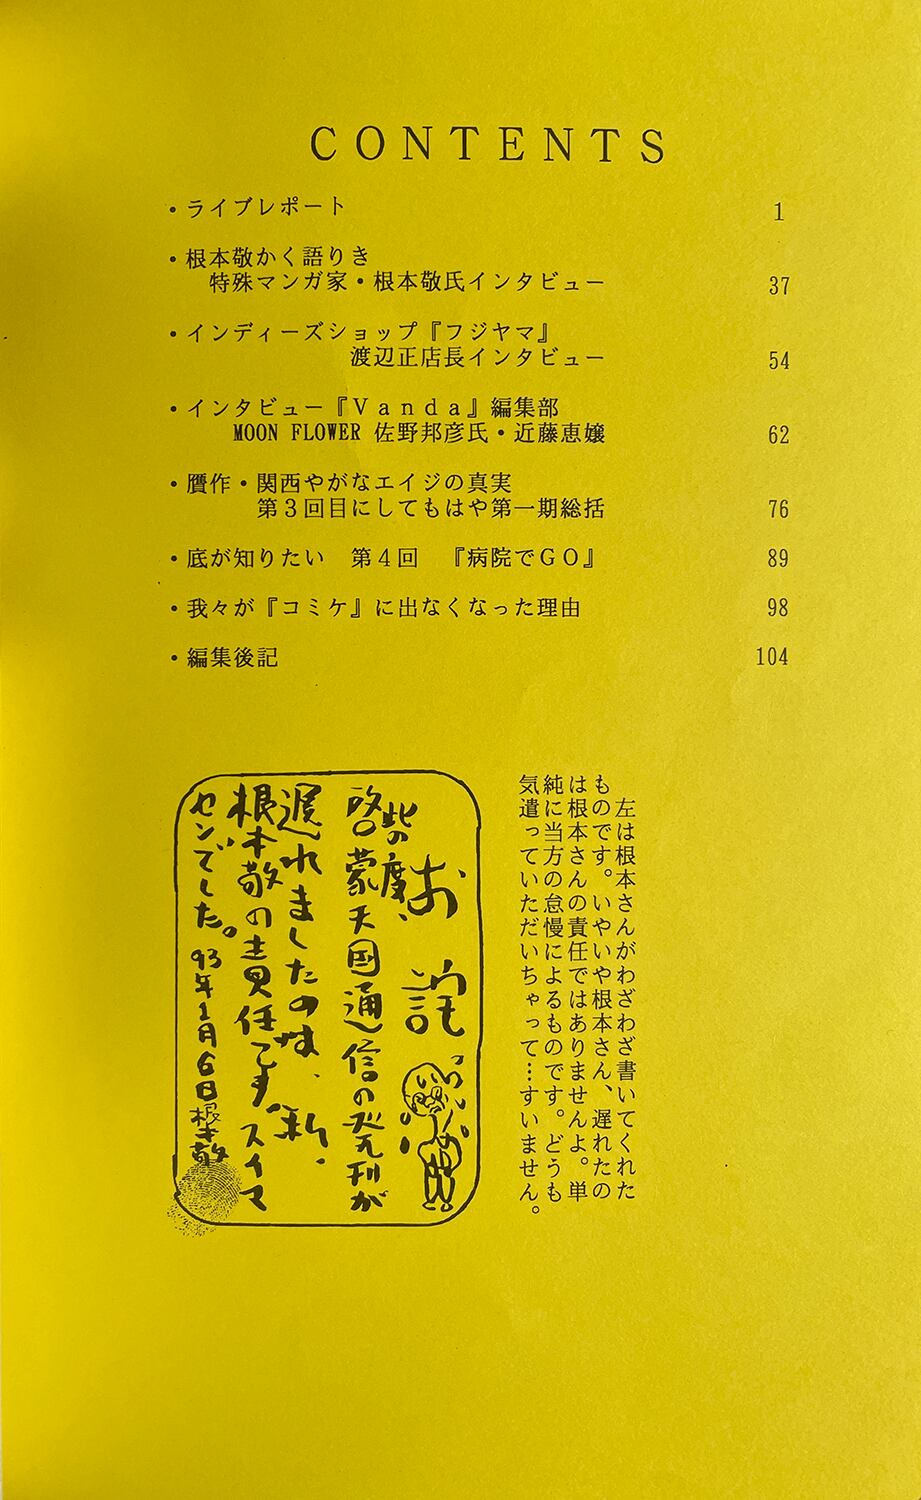 CONTENTS
・ライブレポート 1
・根本敬かく語りき
特殊マンガ家・根本敬氏インタビュー 37
・インディーズショップ『フジヤマ』
渡辺正店長インタビュー 54
・インタビュー『Ｖａｎｄａ』編集部
MOON FLOWER 佐野邦彦氏・近藤恵嬢 62
・贋作・関西やがなエイジの真実
第３回目にしてもはや第一期総括 76
・底が知りたい　第４回　『病院でＧＯ』 89
・我々が『コミケ』に出なくなった理由 98
・編集後記 104
左は根本さんがわざわざ書いてくれた
ものです。いやいや根本さん、遅れたの
は根本さんの責任ではありませんよ。単
純に当方の怠慢によるものです。どうも
気遣っていただいちゃって…すいません。
お詫
此の度、
啓蒙天国通信の発刊が
遅れましたのは、新、
根本敬の責任です。スイマ
センでした。93年1月6日根本敬